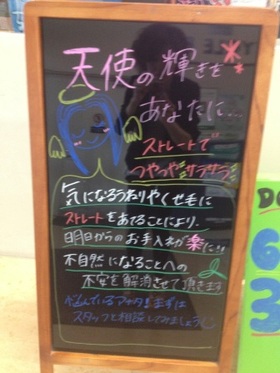 天使の輝きを
あなたに…
ストレートで
つやつやサラサラ
気になるうねりやくせ毛に
ストレートをあてることにより、
明日からのお手入れが楽に!!
不自然になることへの
不安を解消させて頂きます
悩んでいるアナタ!まずは
スタッフと相談してみましょう